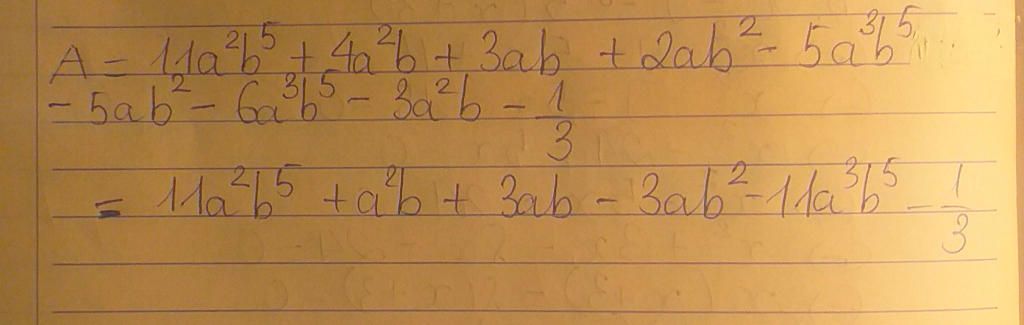 A = 11a²b⁵ + 4a²b + 3ab + 2ab² - 5a³b⁵
- 5ab² - 6a³b⁵ - 3a²b - 1/3
= 11a²b⁵ + a²b + 3ab - 3ab² - 11a³b⁵ - 1/3